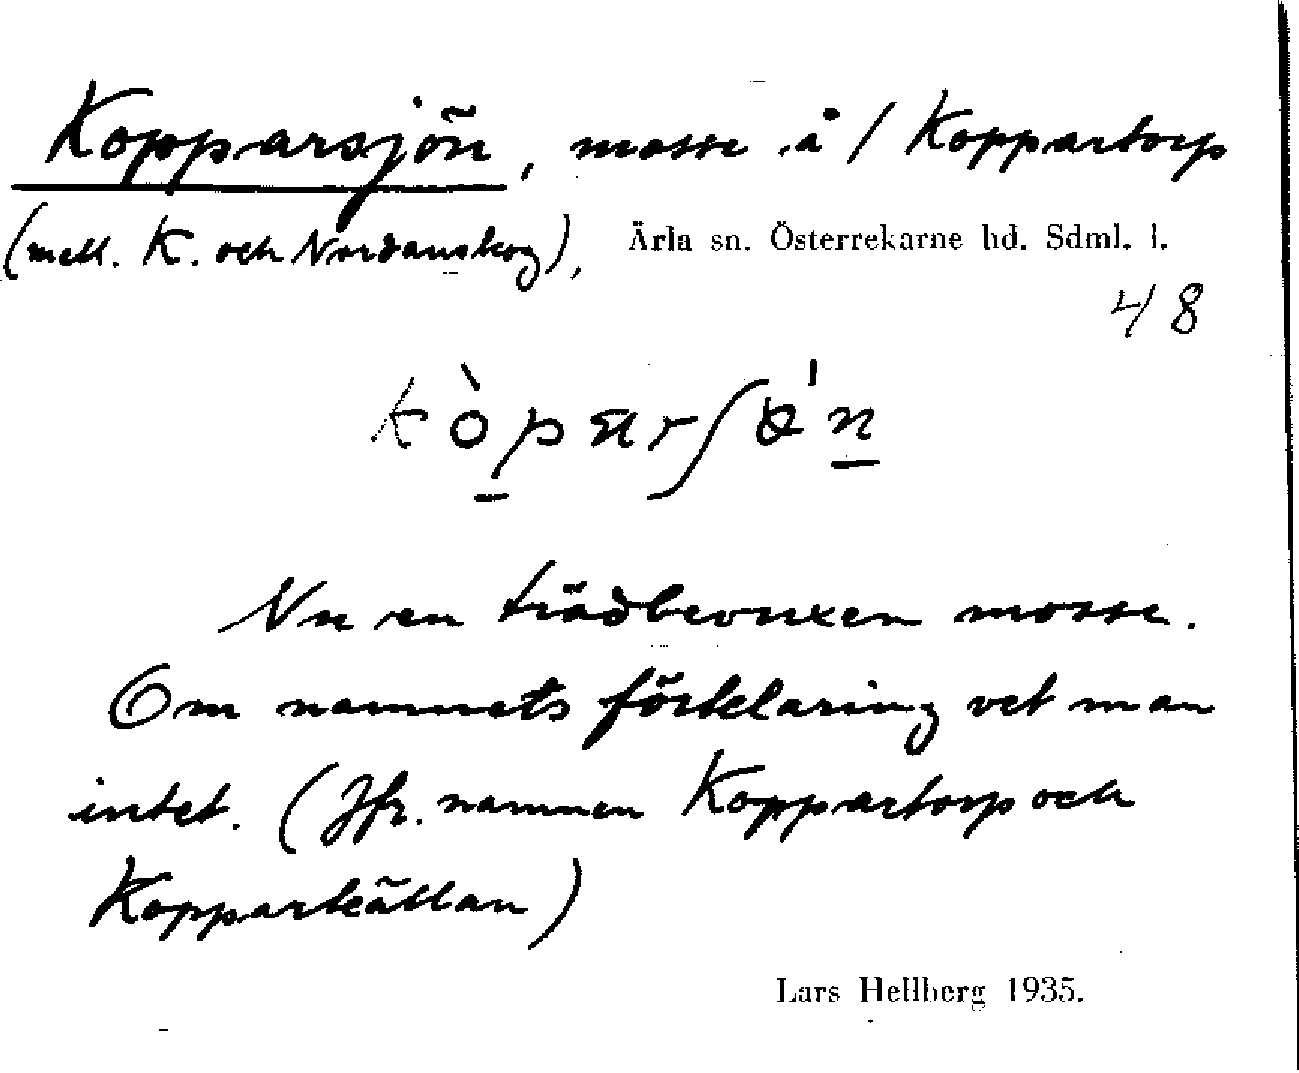 Kopparsjön, mosse å / Koppartorp
(mell. K. och Nordanskog), Ärla sn. Österrekarne hd. Sdml. l.
48
Nu en trädbevuxen mosse.
Om namnets förklaring vet man
intet. (Jfr. namnen Koppartorp och
Kopparkällan)
Lars Hellberg 1935.